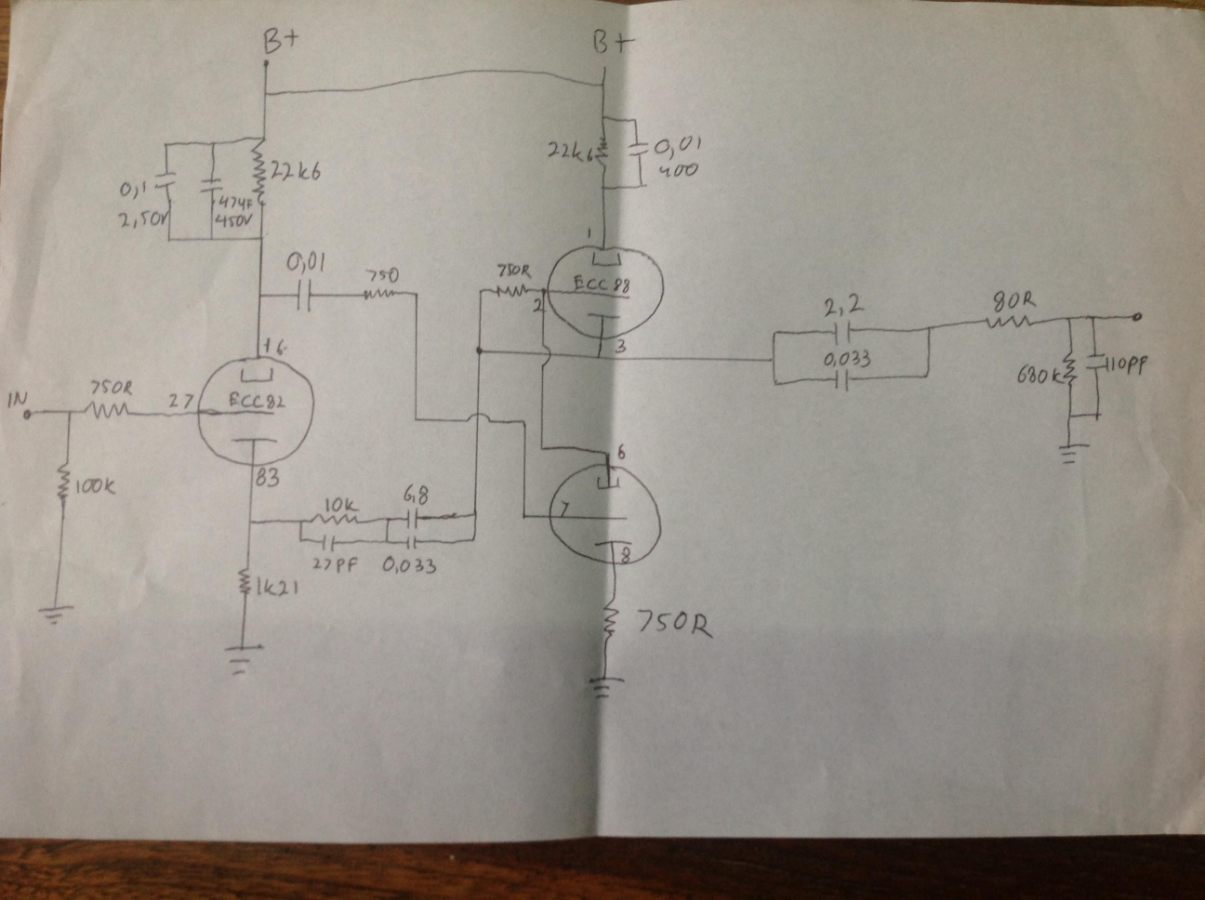 B+
B+
22k6
0,1
2,50V
47uF
450V
22k6
0,01
400
0,01
750
750R
1
ECC 88
2
3
2,2
0,033
80R
680k
110pF
16
IN
750R
27
ECC82
83
100k
10k
6,8
27PF
0,033
1k21
6
7
8
750R